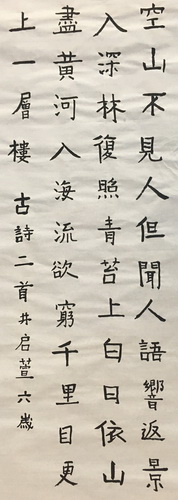 空山不見人但聞人語響返景
入深林復照青苔上白日依山
盡黃河入海流欲窮千里目更
上一層樓 古詩二首井启萱六歲